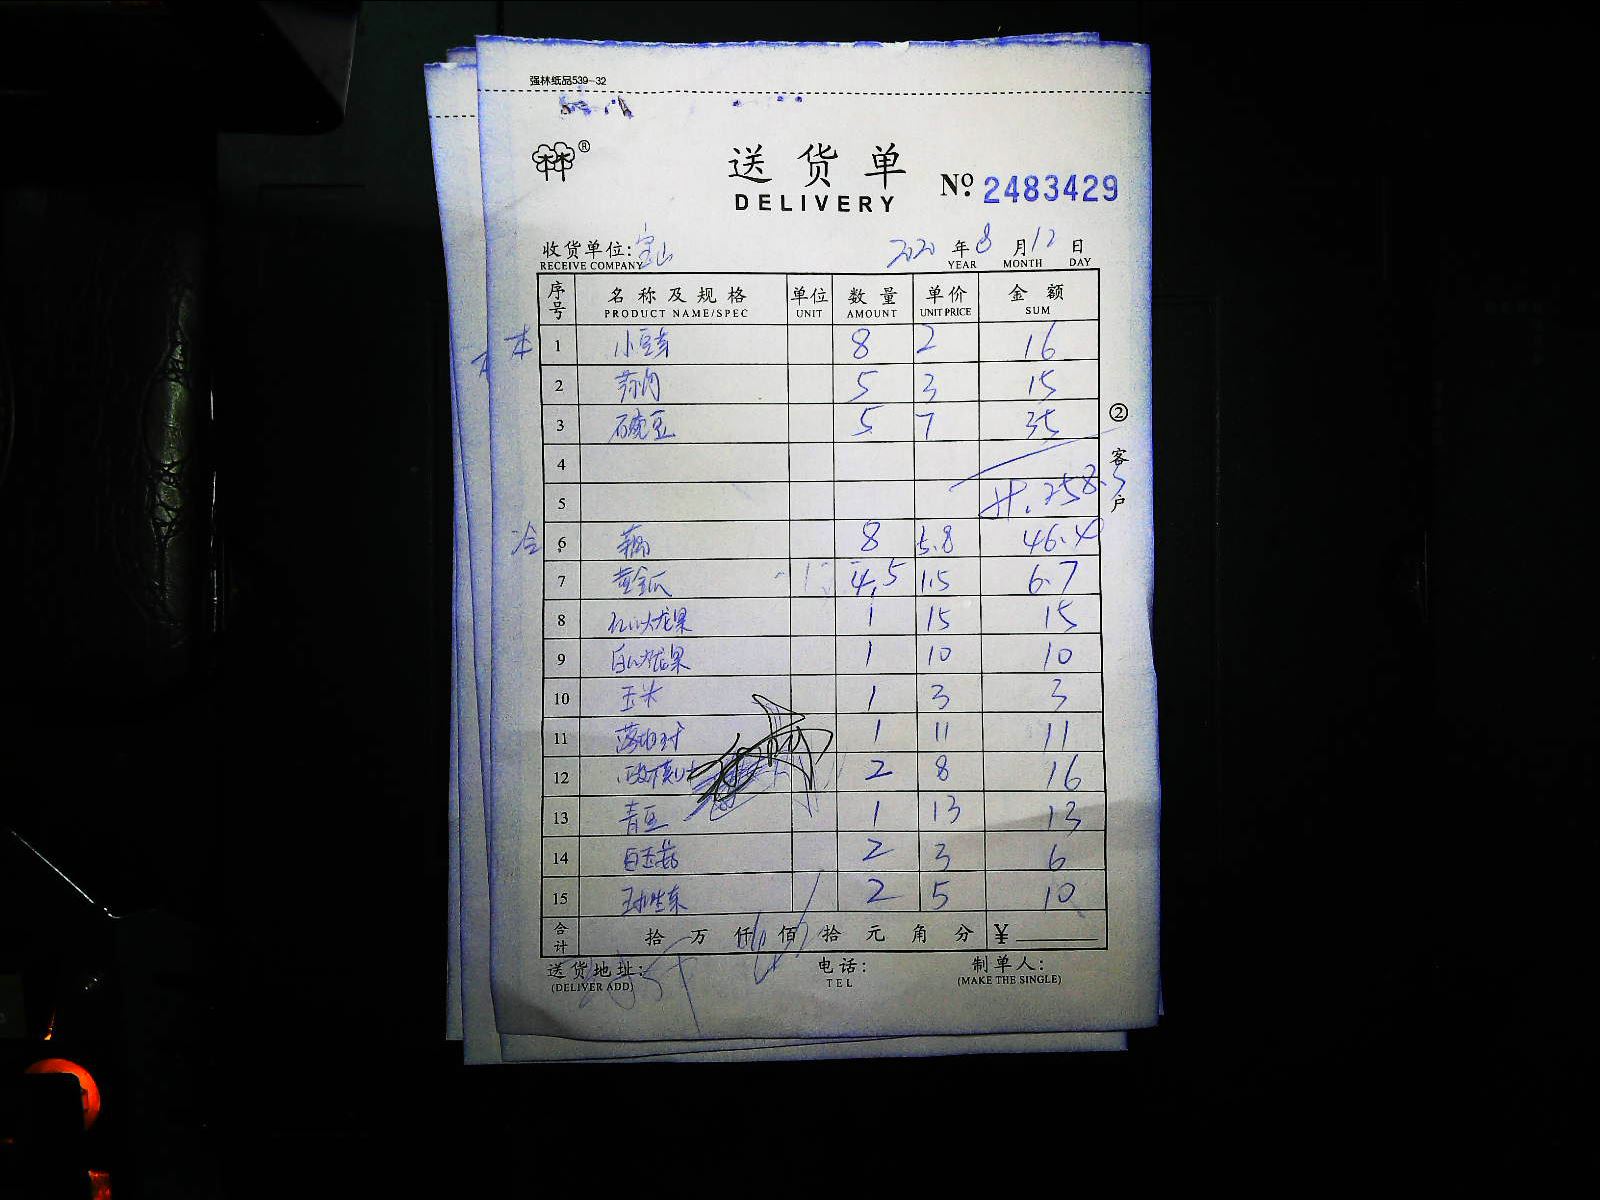 强林纸品539-32
送货单
DELIVERY
№ 2483429
收货单位: 宝山
2020 年 8 月 12 日
RECEIVE COMPANY YEAR MONTH DAY
序号 名称及规格 单位 数量 单价 金额
PRODUCT NAME/SPEC UNIT AMOUNT UNIT PRICE SUM
本 1 小豆芽 8 2 16
2 5 3 15
3 豆 5 7 35
4
5 258.5
冷 6 8 5.8 46.4
7 黄金瓜 4.5 1.5 6.7
8 红心火龙果 1 15 15
9 白心火龙果 1 10 10
10 玉米 1 3 3
11 1 11 11
12 2 8 16
13 青豆 1 13 13
14 白玉菇 2 3 6
15 球生菜 2 5 10
合计 拾 万 仟 佰 拾 元 角 分 ¥
送货地址: 电话: 制单人:
(DELIVER ADD) TEL (MAKE THE SINGLE)
② 客户